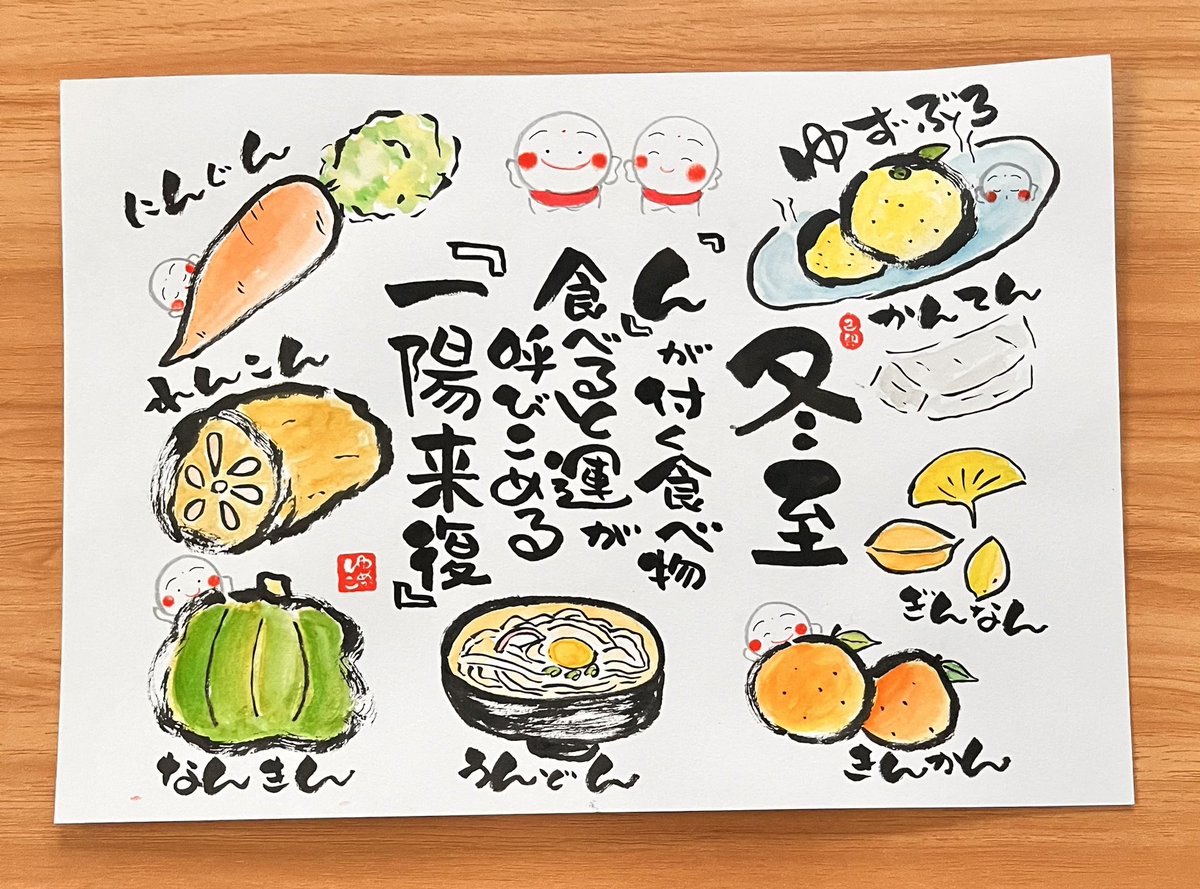 ゆずぶろ
かんてん
ぎんなん
きんかん
冬至
『ん』が付く食べ物
食べると運が
呼びこめる
『一陽来復』
うんどん
にんじん
れんこん
なんきん